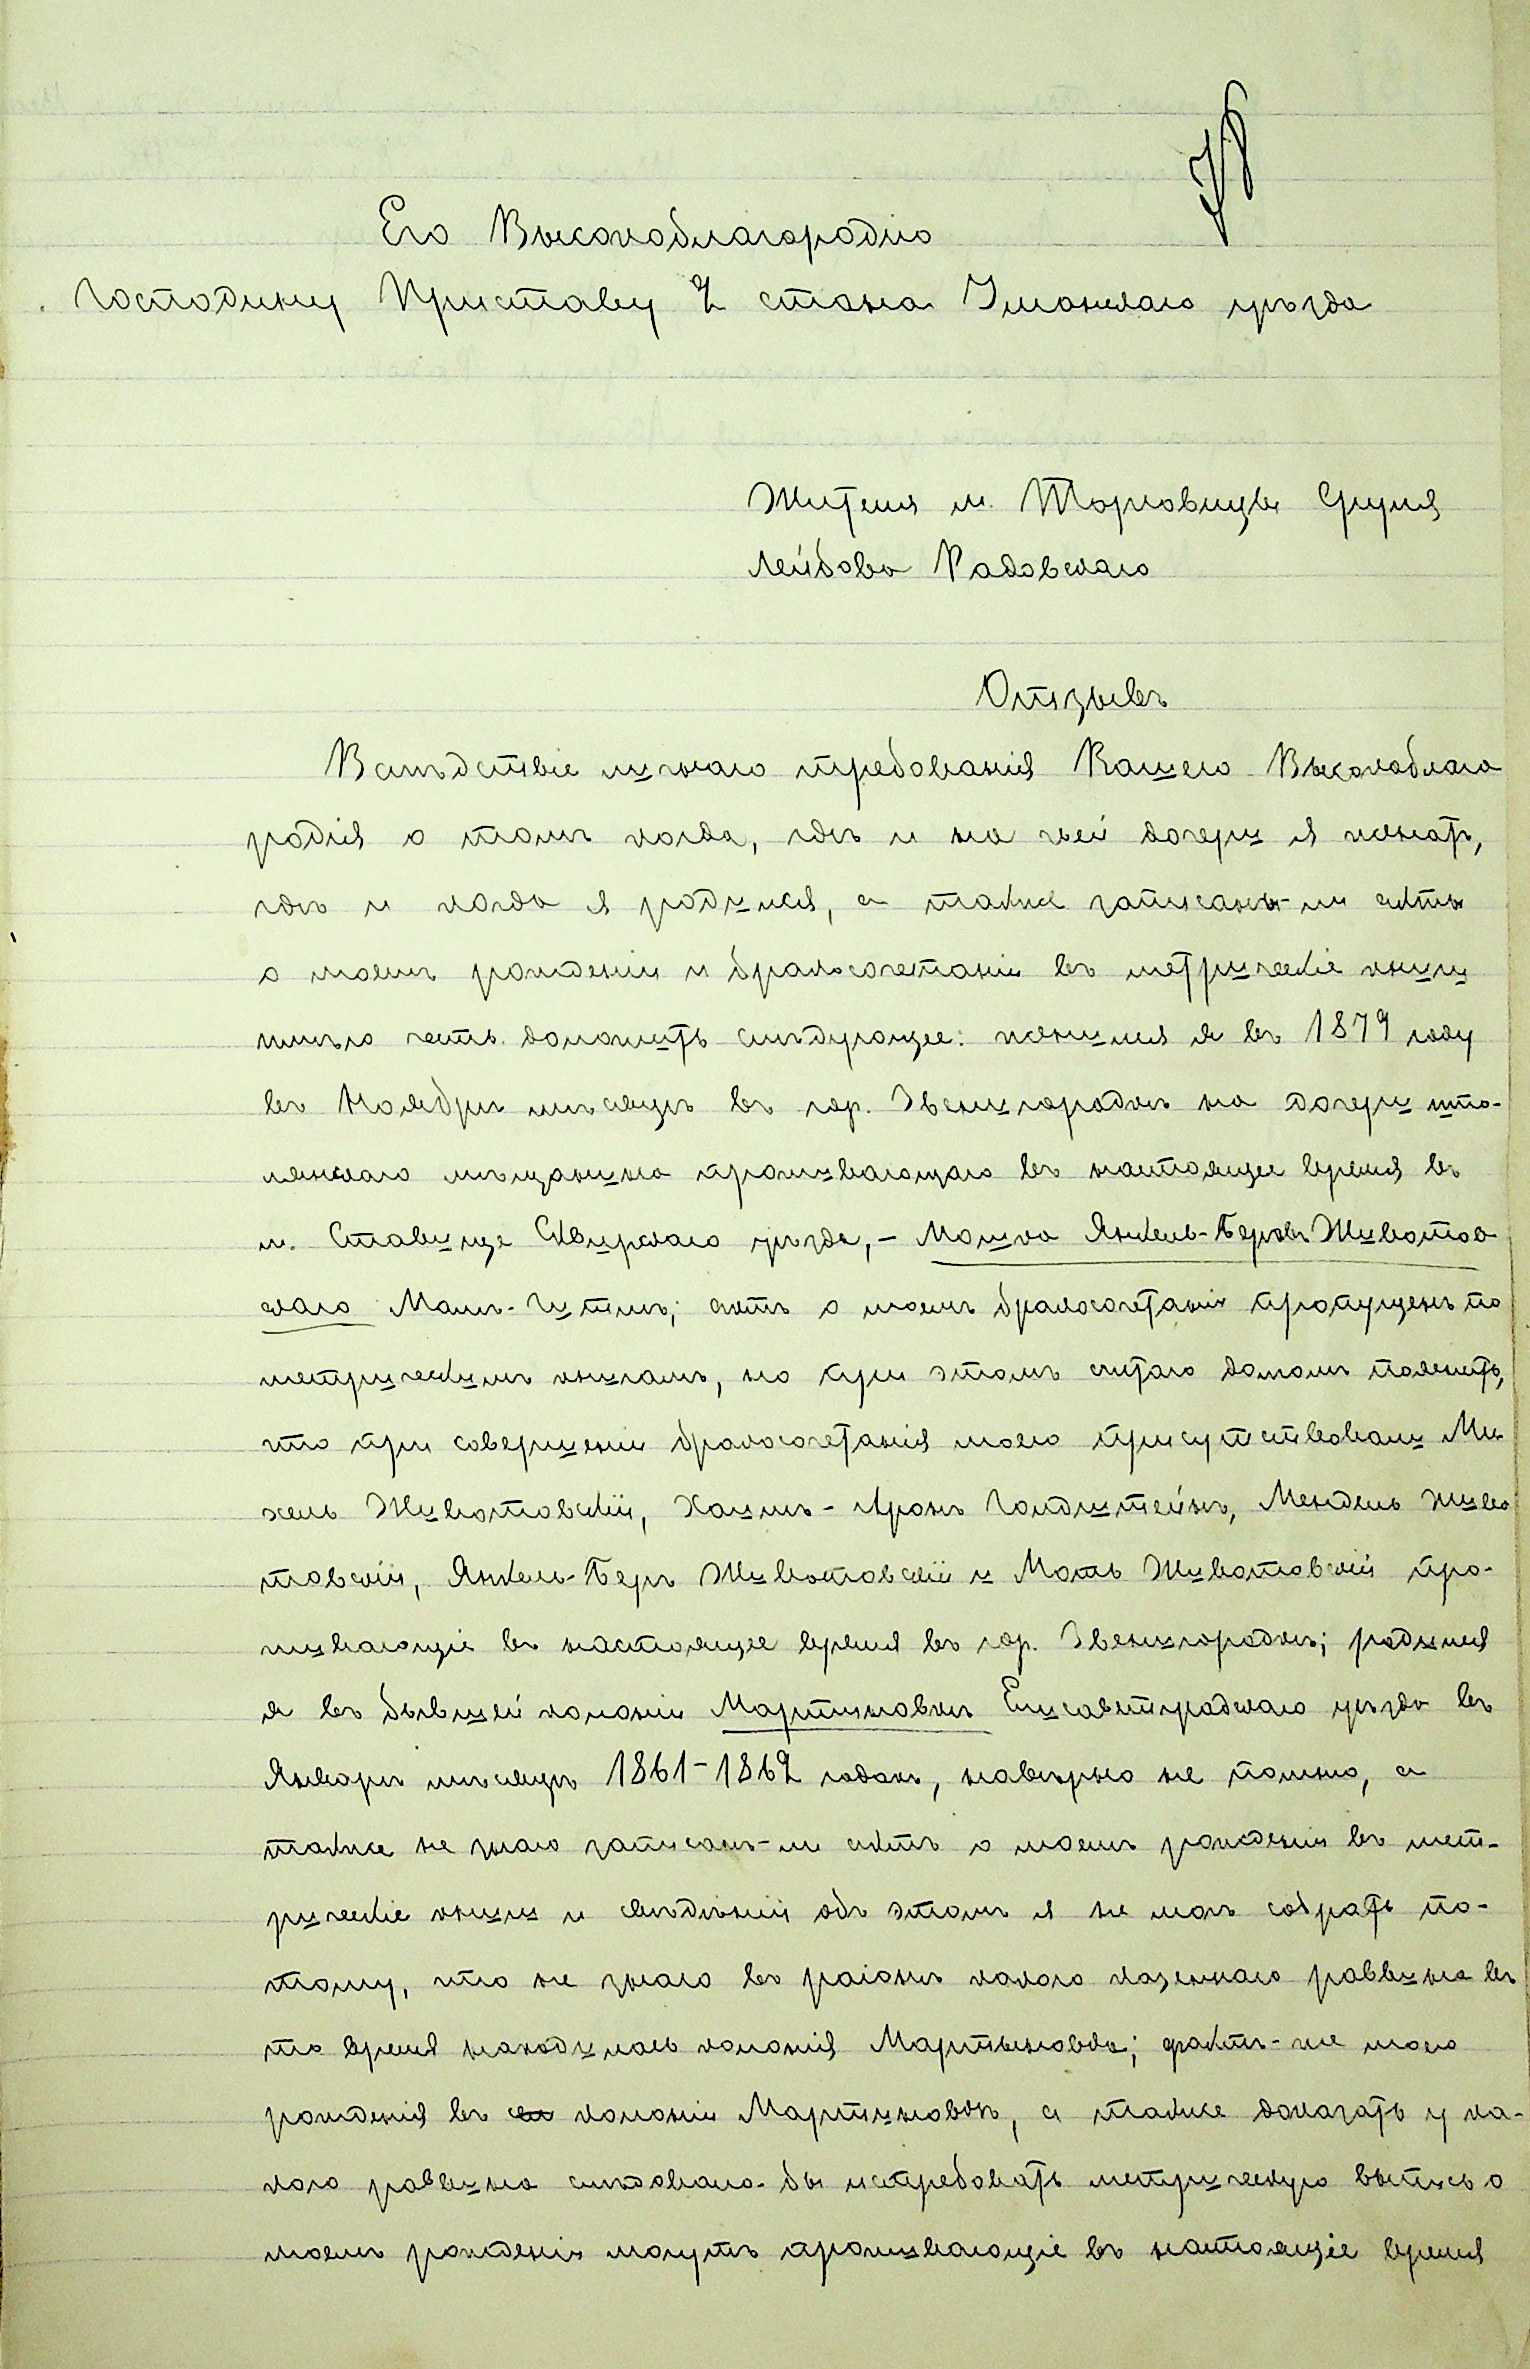 Его Высокоблагородию
Господину Приставу 2 стана Уманскаго уѣзда
Жителя м. Торговицы Сруля
Лейбова Радовскаго
Отзывъ
Вслѣдствіе личнаго требованія Вашего Высокоблаго
родія о томъ когда, гдѣ и на чьей дочери я женатъ,
гдѣ и когда я родился, а также записаны-ли акты
о моемъ рожденіи и бракосочетаніи въ метрическіе книги
имѣю честь доложить слѣдующее: женился я въ 1879 году
въ Ноябрѣ мѣсяцѣ въ гор. Звенигородкѣ на дочери шпо-
лянскаго мѣщанина проживающаго въ настоящее время въ
м. Ставище Сквирскаго уѣзда, - Мошка Янкель-Беровъ Животов
скаго Малъ-Гитлѣ; актъ о моемъ бракосочетаніи пропущенъ по
метрическимъ книгамъ, но при этомъ считаю долгомъ пояснить,
что при совершеніи бракосочетанія моего присутствовали Ми-
хель Животовскій, Хаимъ-Аронъ Голдштейнъ, Мендель Живо
товскій, Янкель-Беръ Животовскій и Моть Животовскій про-
живающіе въ настоящее время въ гор. Звенигородкѣ; родился
я въ бывшей колоніи Мартиновкѣ Елисаветградскаго уѣзда въ
Январѣ мѣсяцѣ 1861-1862 годахъ, навѣрно не помню, а
также не знаю записанъ-ли актъ о моемъ рожденіи въ мет-
рическіе книги и свѣдѣній объ этомъ я не могъ собрать по-
тому, что не знаю въ раіонѣ какого казеннаго раввина въ
то время находилась колонія Мартыновка; фактъ-же моего
рожденія въ колоніи Мартиновкѣ, а также доказать у ка-
кого раввина слѣдовало-бы истребовать метрическую выпись о
моемъ рожденіи могутъ проживающіе въ настоящіе время